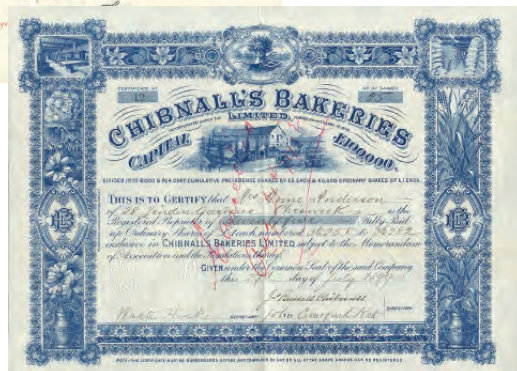 CERTIFICATE Nº
Nº OF SHARES
13
25
CHIBNALL'S BAKERIES
LIMITED.
CAPITAL £100,000
DIVIDED INTO 12,000 6 PER CENT. CUMULATIVE PREFERENCE SHARES OF £5 EACH & 40,000 ORDINARY SHARES OF £1 EACH.
THIS IS TO CERTIFY that Mrs Anne Anderson
of Linden Gardens Chiswick is the
Registered Proprietor of Fully Paid
up Ordinary Shares of £1 each numbered 36258 to 36282
inclusive in CHIBNALL'S BAKERIES LIMITED subject to the Memorandum
of Association and the Regulations thereof.
GIVEN under the Common Seal of the said Company
this day of July
Chibnall
SECRETARY.
John
DIRECTORS.
NOTE: THIS CERTIFICATE MUST BE SURRENDERED BEFORE ANY TRANSFER OF ANY OR ALL OF THE ABOVE SHARES CAN BE REGISTERED